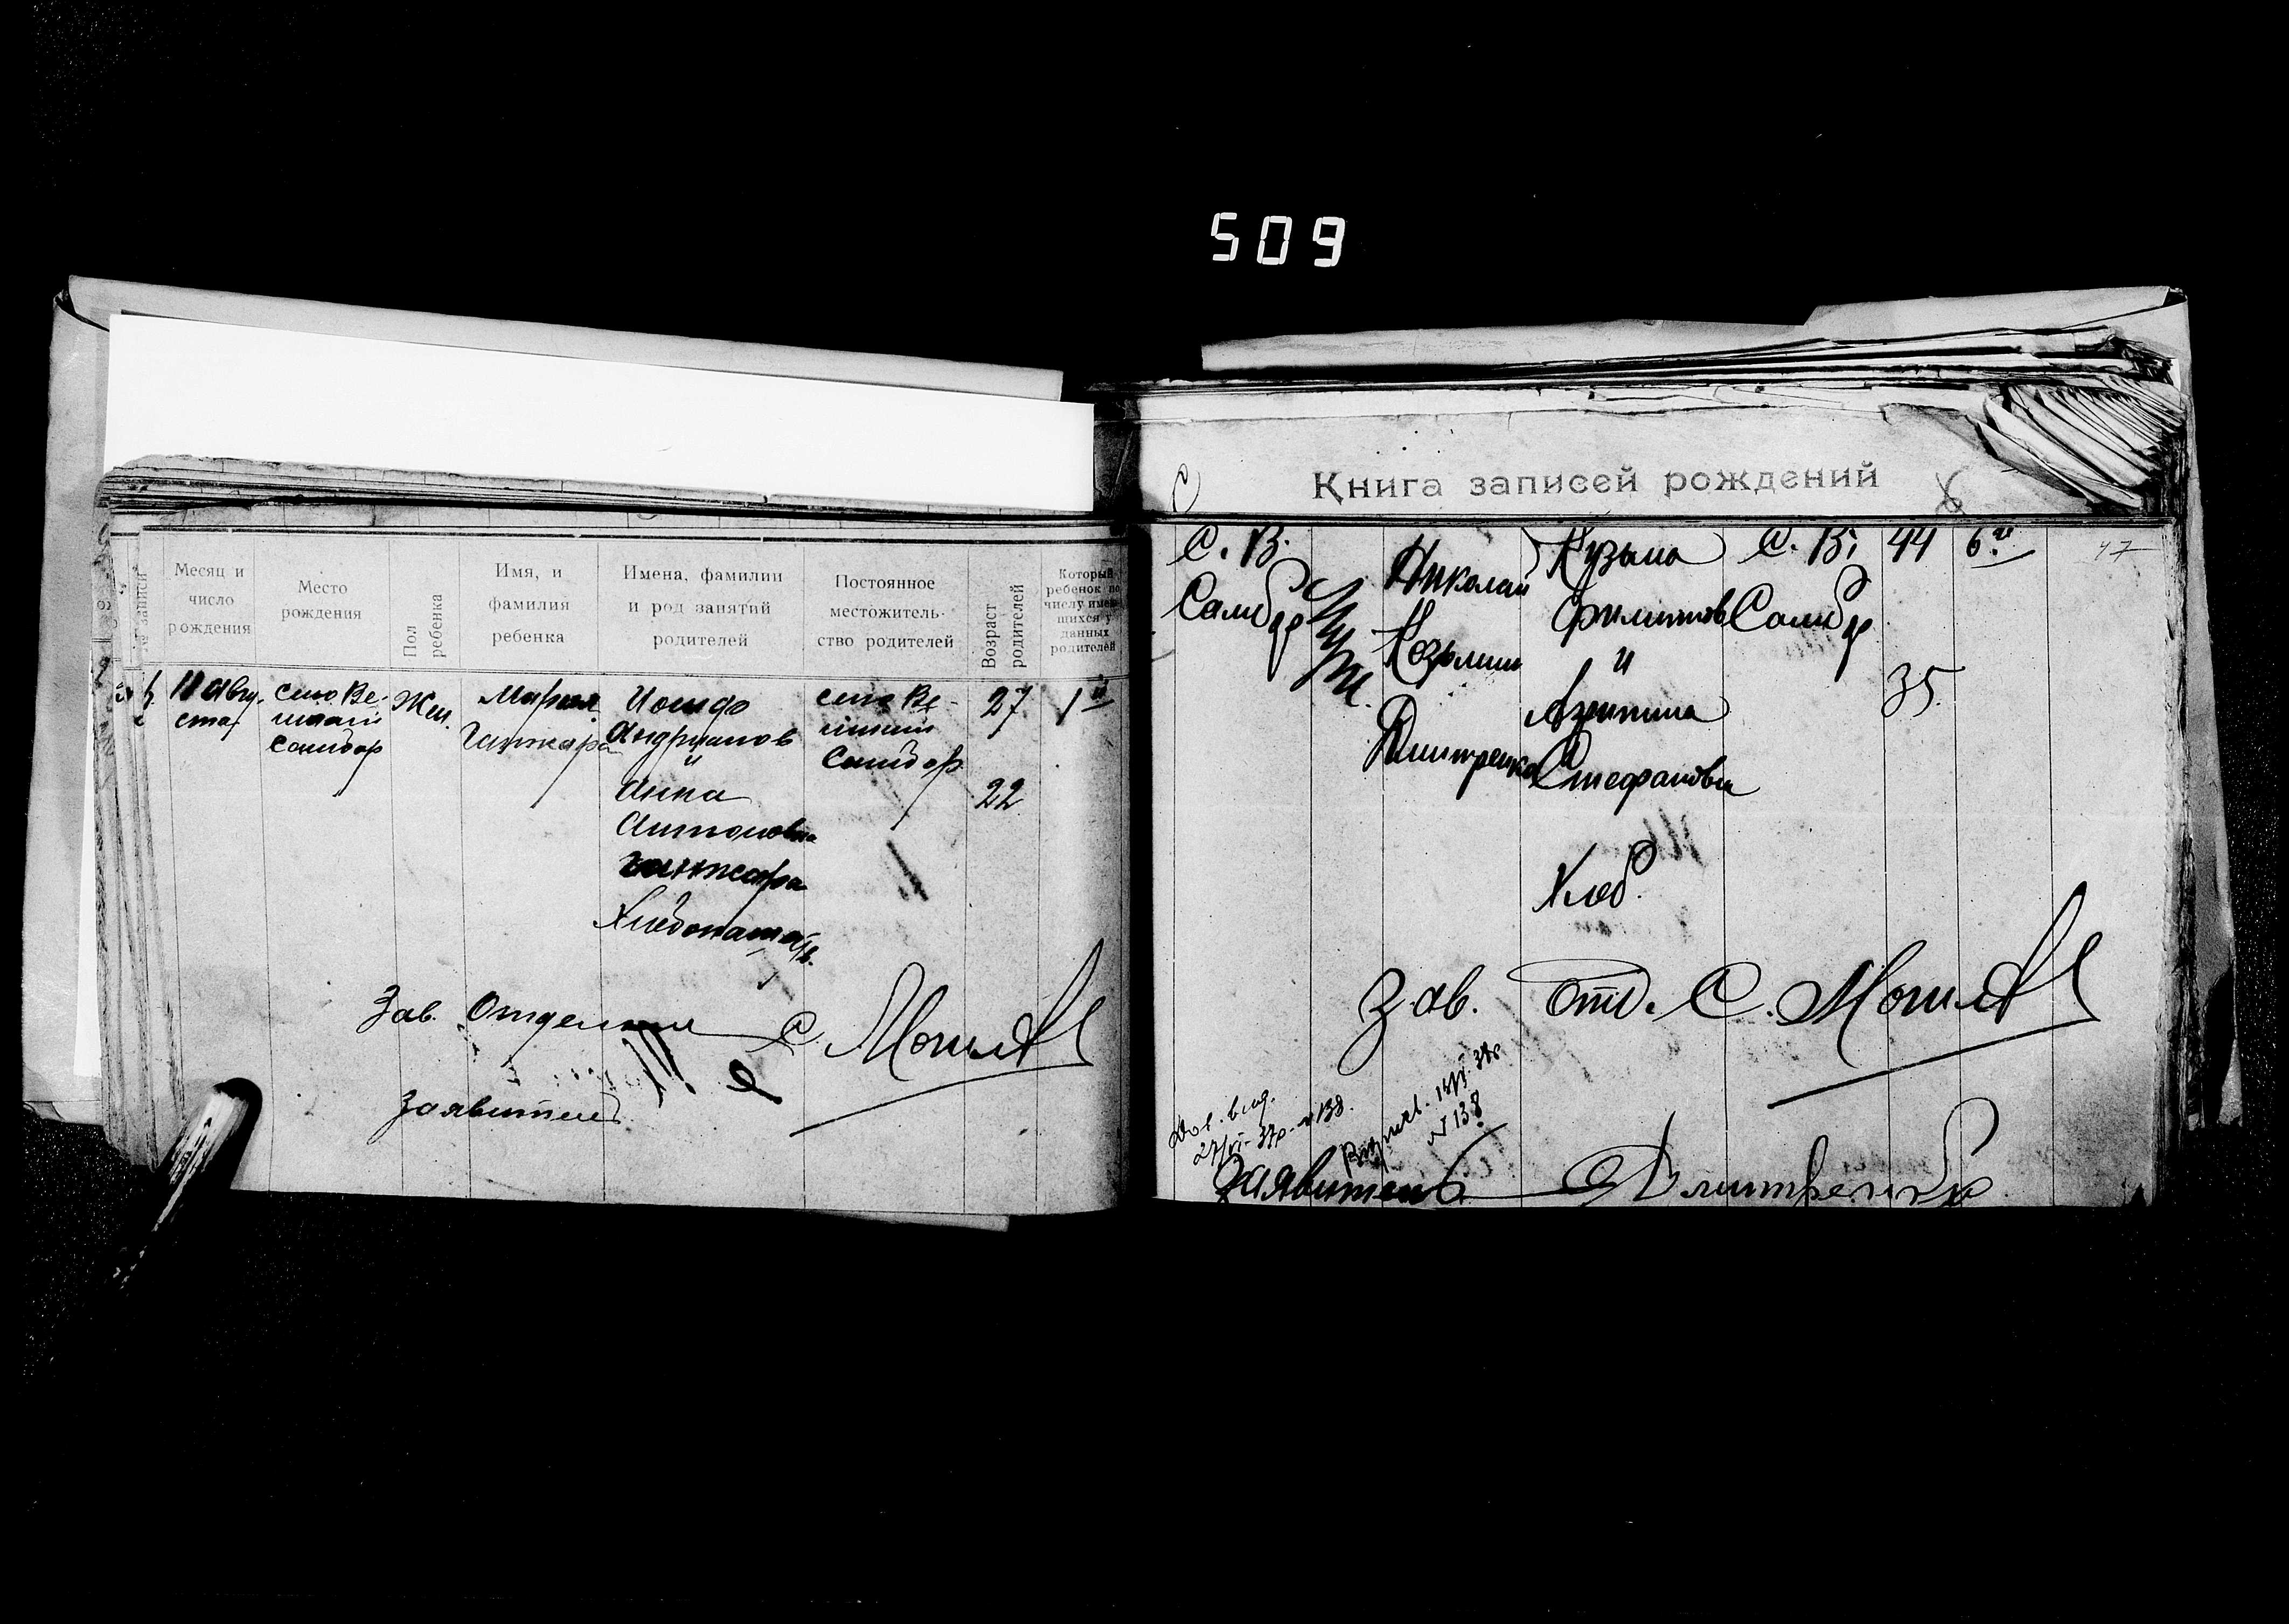 509
№ записи
Месяц и
число
рождения
Место
рождения
Пол
ребенка
Имя, и
фамилия
ребенка
Имена, фамилии
и род занятий
родителей
Постоянное
местожитель-
ство родителей
Возраст
родителей
Который
ребенок по
числу имею
щихся у
данных
родителей
11 Авгу-
ста
село Ве-
ликий
Самбор
Жен.
Мария
Ганжара
Иосиф
Андрианов
и
Анна
Антоновна
Ганжара
Хлебопашец
село Ве-
ликий
Самбор
27
22
1й
Зав. Отделом С.
Заявитель
Книга записей рождений
С. В.
Самбор
Муж.
Николай
Козьмин
Дмитренко
Кузьма
Филиппов
и
Агрипина
Стефановна
Хлеб.
С. В.
Самбор
44
35
6й
47
Зав. Отд. С.
27/VI-37р. №138.
№138
Заявитель Дмитренко